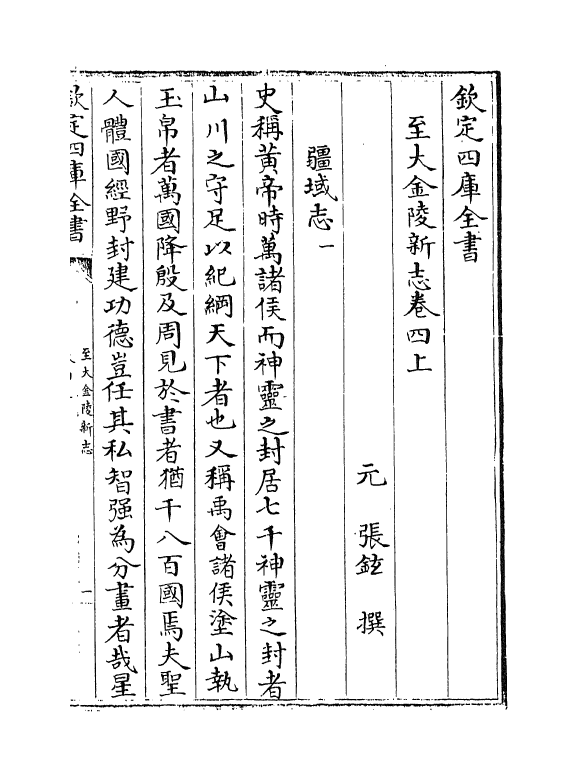 欽定四庫全書
至大金陵新志卷四上
元 張鉉 撰
疆域志一
史稱黃帝時萬諸侯而神靈之封居七千神靈之封者
山川之守足以紀綱天下者也又稱禹會諸侯塗山執
玉帛者萬國降殷及周見於書者猶千八百國焉夫聖
人體國經野封建功德豈任其私智强為分畫者哉星
欽定四庫全書
至大金陵新志
一